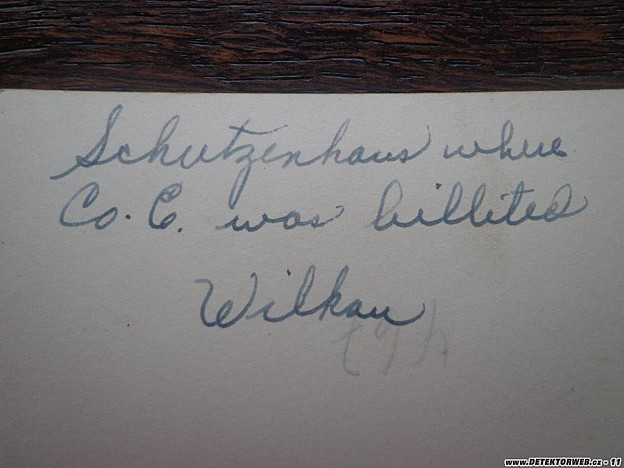 Schutzenhaus where
Co. E. was billited
Wilkau
www.DETEKTORWEB.cz - 11